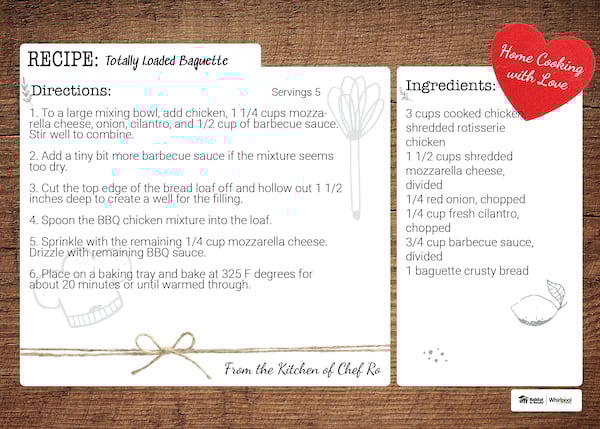 RECIPE: Totally Loaded Baguette
Directions:
Servings 5
1. To a large mixing bowl, add chicken, 1 1/4 cups mozza-
rella cheese, onion, cilantro, and 1/2 cup of barbecue sauce.
Stir well to combine.
2. Add a tiny bit more barbecue sauce if the mixture seems
too dry.
3. Cut the top edge of the bread loaf off and hollow out 1 1/2
inches deep to create a well for the filling.
4. Spoon the BBQ chicken mixture into the loaf.
5. Sprinkle with the remaining 1/4 cup mozzarella cheese.
Drizzle with remaining BBQ sauce.
6. Place on a baking tray and bake at 325 F degrees for
about 20 minutes or until warmed through.
From the Kitchen of Chef Ro
Home Cooking
with Love
Ingredients:
3 cups cooked chicken
shredded rotisserie
chicken
1 1/2 cups shredded
mozzarella cheese,
divided
1/4 red onion, chopped
1/4 cup fresh cilantro,
chopped
3/4 cup barbecue sauce,
divided
1 baguette crusty bread
Habitat
for Humanity
Whirlpool